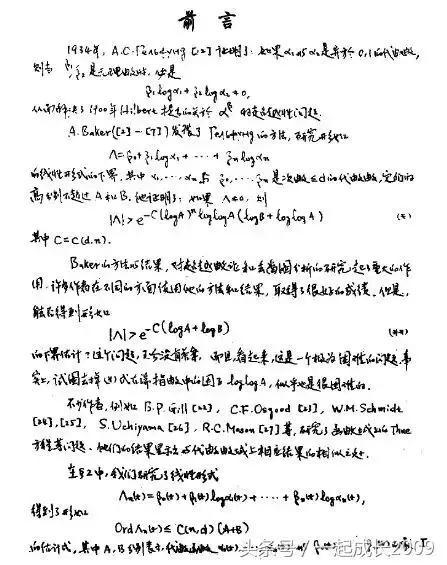 前言
1934年, A.C. Гельфонд [12] 证明了: 如果α₁与α₂是异于0,1的代数数,
β₁, β₂是 但是
β₁logα₁+β₂logα₂≠0,
从而解决了1900年Hilbert提出的关于 α^β 的超越性问题.
A. Baker ([2]-[7]) 发展了 Гельфонд 的方法, 研究形如
Λ=β₀+β₁logα₁+⋯+βₙlogαₙ
的线性形式的下界, 其中 α₁,⋯,αₙ 与 β₀,⋯,βₙ 是次数≤d的代数数, 它们的
高分别不超过A和B. 他证明了: 如果 Λ≠0, 则
|Λ|>e^{-C(logA)ⁿloglogA(logB+loglogA)} (*)
其中 C=C(d,n).
Baker的方法与结果, 对超越数论和 分析的研究起了重大的作
用. 许多作者在不同的方面使用他的方法和结果, 取得了很好的成绩. 但是,
能否得到形如
|Λ|>e^{-C(logA+logB)} (**)
的下界估计? 这个问题, 至今没有答案, 而且看起来, 这是一个极为困难的问题. 事
实上, 试图去掉(*)式右端指数中的因子 loglogA, 似乎也是很困难的.
不少作者, 例如 B.P. Gill [22], C.F. Osgood [23], W.M. Schmidt
[24],[25], S. Uchiyama [26], R.C. Mason [27] 等, 研究了函数域上的 Thue
方程等问题. 他们的结果显示出与代数数域上相应结果的相似之处.
在§2中, 我们研究了线性形式
Λₙ(t)=β₀(t)+β₁(t)logα₁(t)+⋯+βₙ(t)logαₙ(t),
得到了形如
Ord Λₙ(t)≤C(n,d)(A+B)
的估计式, 其中A,B分别表示代数函数
头条号/一起成长2009